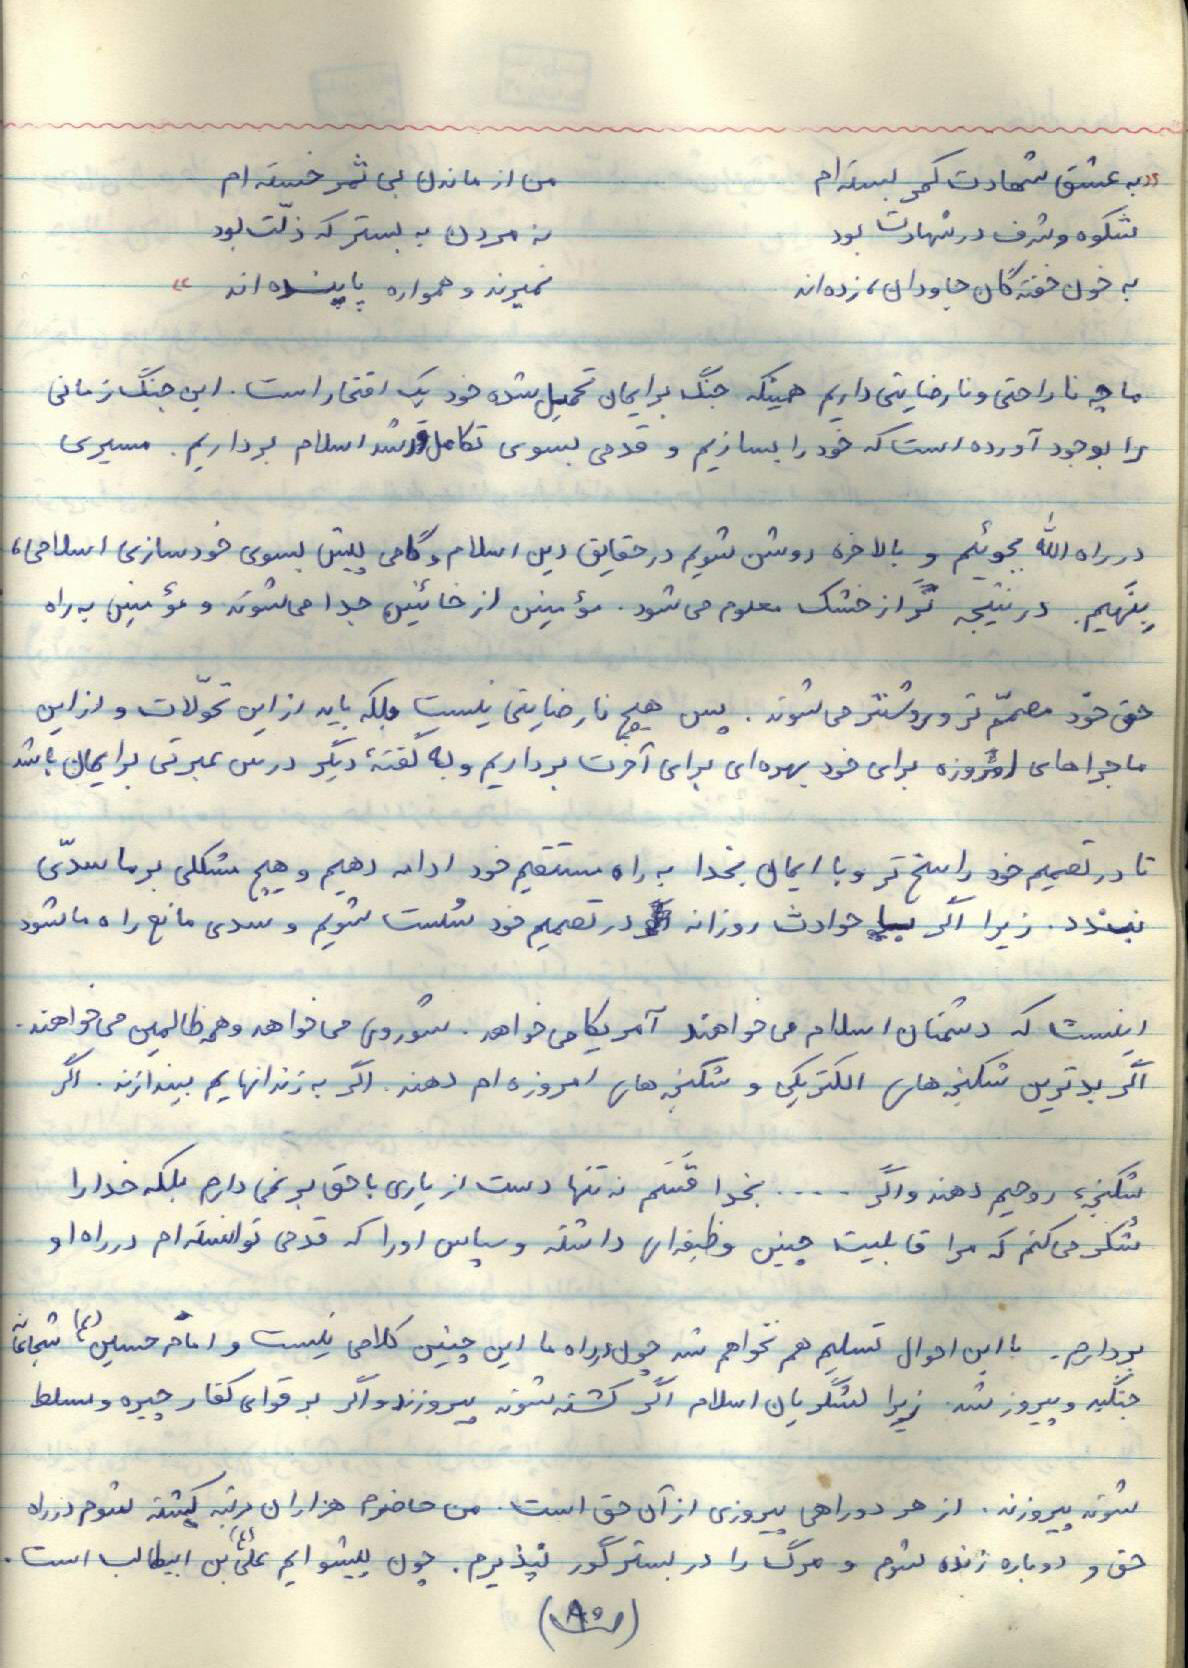 «به عشق شهادت کمر بسته‌ام من از ماندن بی ثمر خسته‌ام
شکوه و شرف در شهادت بود نه مردن به بستر که ذلّت بود
به خون خفته گان جاودان، زنده‌اند نمیرند و همواره پاینده‌اند»
ما چه ناراحتی و نارضایتی داریم همینکه جنگ برایمان تحمیل شده خود یک افتخار است. این جنگ زمانی
را بوجود آورده است که خود را بسازیم و قدمی بسوی تکامل و رشد اسلام برداریم. مسیری
در راه الله بجوئیم و بالاخره روشن شویم در حقایق دین اسلام و گامی پیش بسوی خودسازی اسلامی،
بنهیم. در نتیجه تر از خشک معلوم می‌شود. مؤمنین از خائنین جدا می‌شوند و مؤمنین به راه
حق خود مصمّم تر و روشنتر می‌شوند. پس هیچ نارضایتی نیست بلکه باید از این تحوّلات و از این
ماجراهای امروزه برای خود بهره‌ای برای آخرت برداریم و به گفتهٔ دیگر درس عبرتی برایمان باشد
تا در تصمیم خود راسخ تر و با ایمان بخدا به راه مستقیم خود ادامه دهیم و هیچ مشکلی بر ما سدّی
نبندد. زیرا اگر با حوادث روزانه در تصمیم خود سُست شویم و سدی مانع راه ما شود
اینست که دشمنان اسلام می‌خواهند آمریکا می‌خواهد. شوروی می‌خواهد و همه ظالمین می‌خواهند.
اگر بدترین شکنجه‌های الکتریکی و شکنجه‌های امروزه‌ام دهند. اگر به زندانهایم بیندازند. اگر
شکنجهء روحیم دهند و اگر ..... بخدا قَسَم نه تنها دست از یاری با حق بر نمی‌دارم بلکه خدا را
شکر می‌کنم که مرا قابلیت چنین وظیفه‌ای داشته و سپاس او را که قدمی توانسته‌ام در راه او
بردارم. با این احوال تسلیم هم نخواهم شد چون در راه ما این چنین کلامی نیست و امام حسین (ع) شجاعانه
جنگید و پیروز شد. زیرا لشگریان اسلام اگر کشته شوند پیروزند و اگر بر قوای کفار چیره و مسلط
شوند پیروزند. از هر دو راهی پیروزی از آن حق است. من حاضرم هزاران مرتبه کشته شوم در راه
حق و دوباره زنده شوم و مرگ را در بستر گور نپذیرم. چون پیشوایم علی (ع) بن ابیطالب است.
(۸۰)